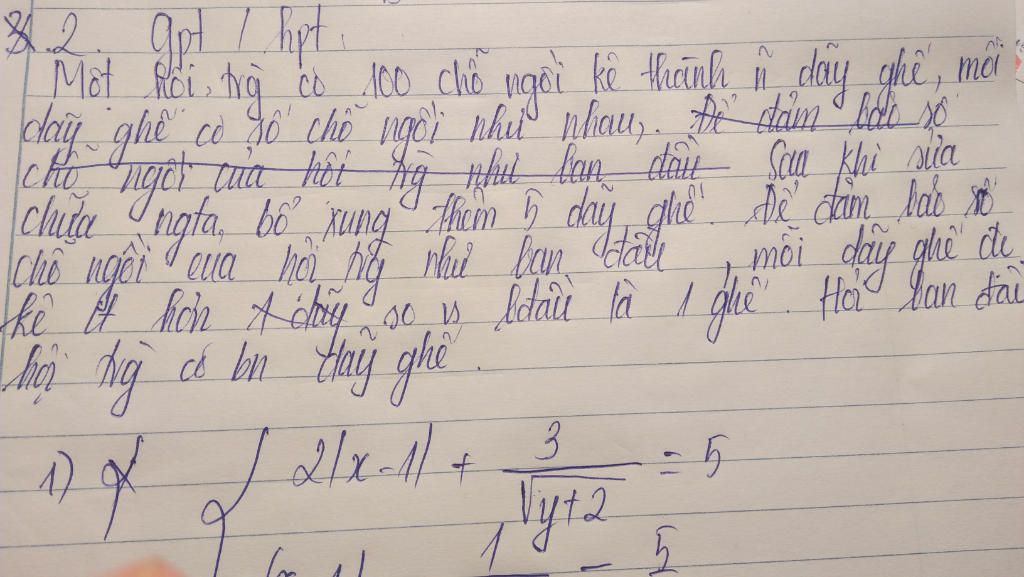 2. Gpt / hpt.
Một hội trg có 100 chỗ ngồi kê thành n dãy ghế, mỗi
dãy ghế có số chỗ ngồi như nhau, Để đảm bảo số
chỗ ngồi của hội trg như ban đầu Sau khi sửa
chữa ngta bổ xung thêm 5 dãy ghế. Để đảm bảo số
chỗ ngồi của hội trg như ban đầu, mỗi dãy ghế đc
kê ít hơn 1 dãy so vs bđầu là 1 ghế. Hỏi ban đầu
hội trg có bn dãy ghế.
1) { 2|x-1| + 3/√y+2 = 5
|x-1| 1 = 5